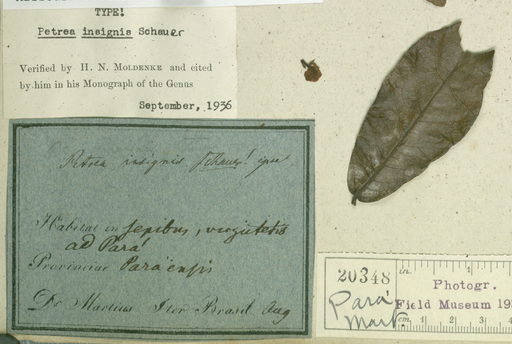 TYPE!
Petrea insignis Schauer
Verified by H. N. MOLDENKE and cited
by him in his Monograph of the Genus
September, 1936
Petrea insignis Schauer! ipse
Habitat in sepibus, virgultetis
ad Pará
Provinciae Paraënsis
Dr Martius Iter Brasil Aug
20348
Pará
Mart.
in.
Photogr.
Field Museum
cm.
1
2
3
4